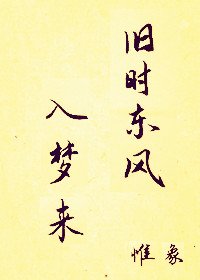 旧时东风
入梦来
惟象